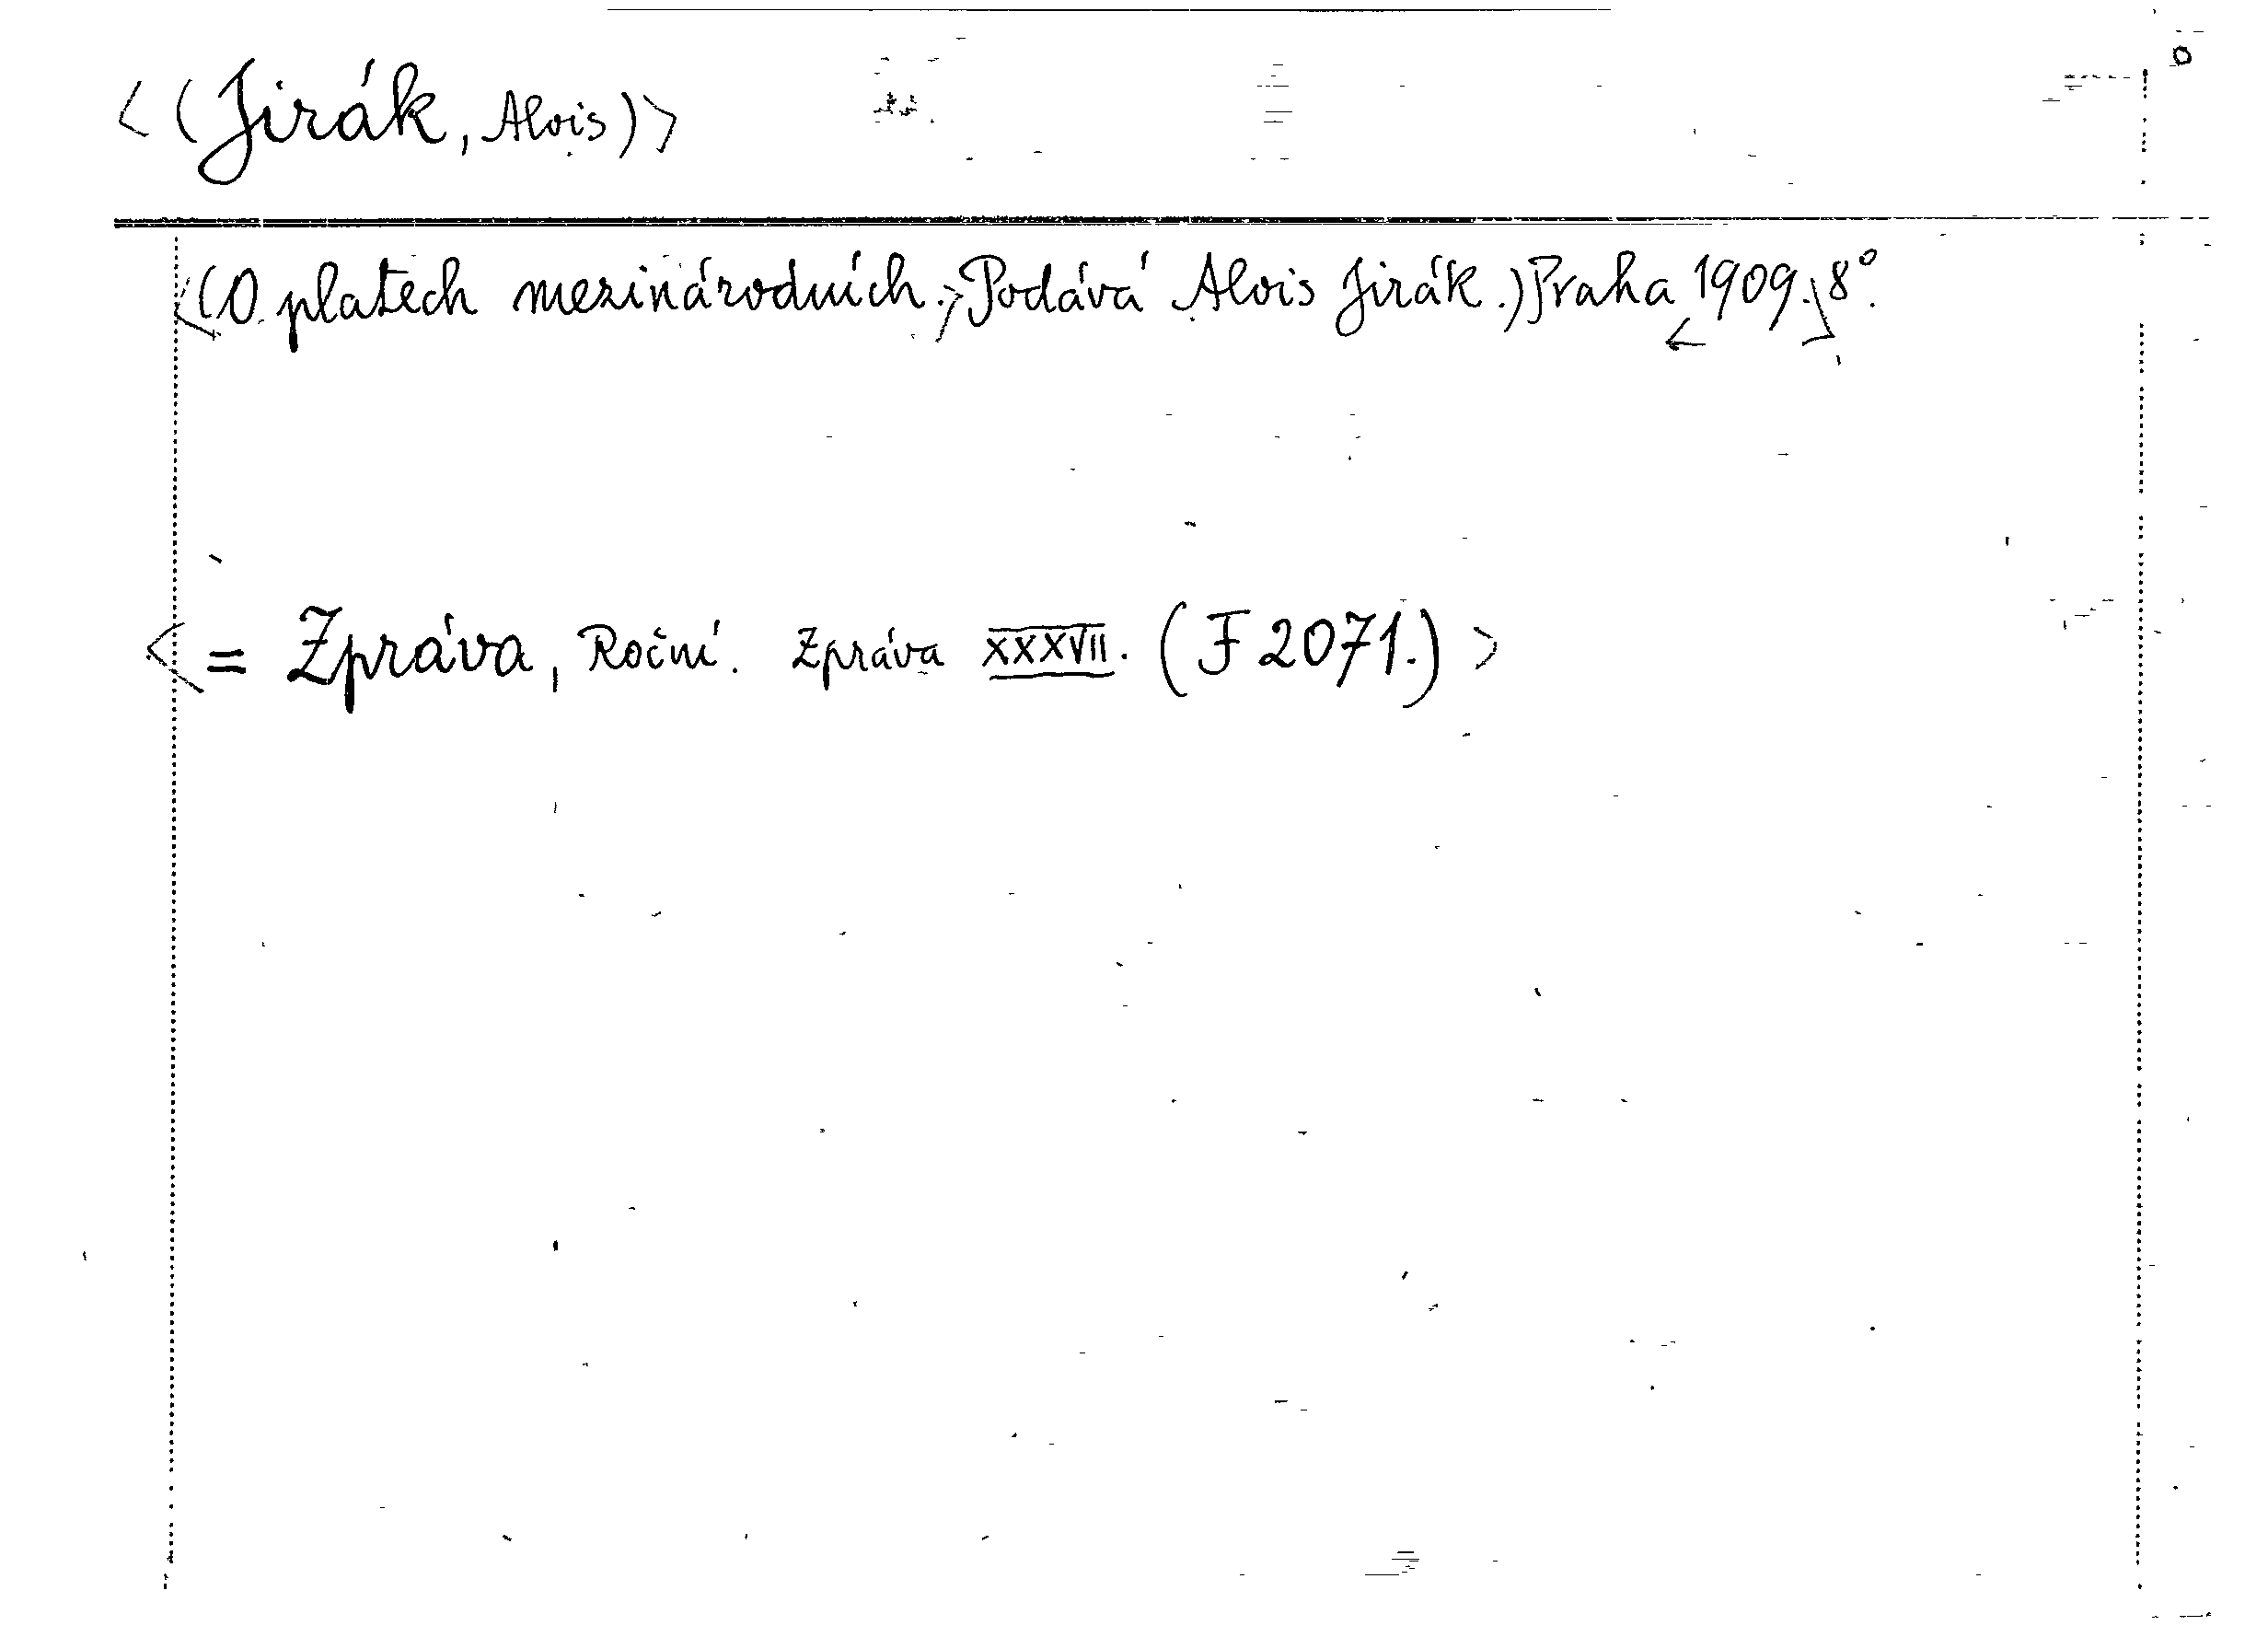 <(Jirák, Alois)>
<(O platech mezinárodních.> Podává Alois Jirák.) Praha <1909.> 8°.
<= Zpráva, Roční. Zpráva XXXVII. (F 2071.)>